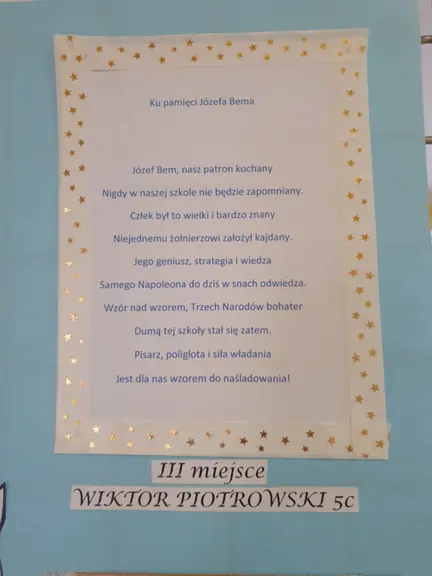 Ku pamięci Józefa Bema
Józef Bem, nasz patron kochany
Nigdy w naszej szkole nie będzie zapomniany.
Człek był to wielki i bardzo znany
Niejednemu żołnierzowi założył kajdany.
Jego geniusz, strategia i wiedza
Samego Napoleona do dziś w snach odwiedza.
Wzór nad wzorem, Trzech Narodów bohater
Dumą tej szkoły stał się zatem.
Pisarz, poliglota i siła władania
Jest dla nas wzorem do naśladowania!
III miejsce
WIKTOR PIOTROWSKI 5c